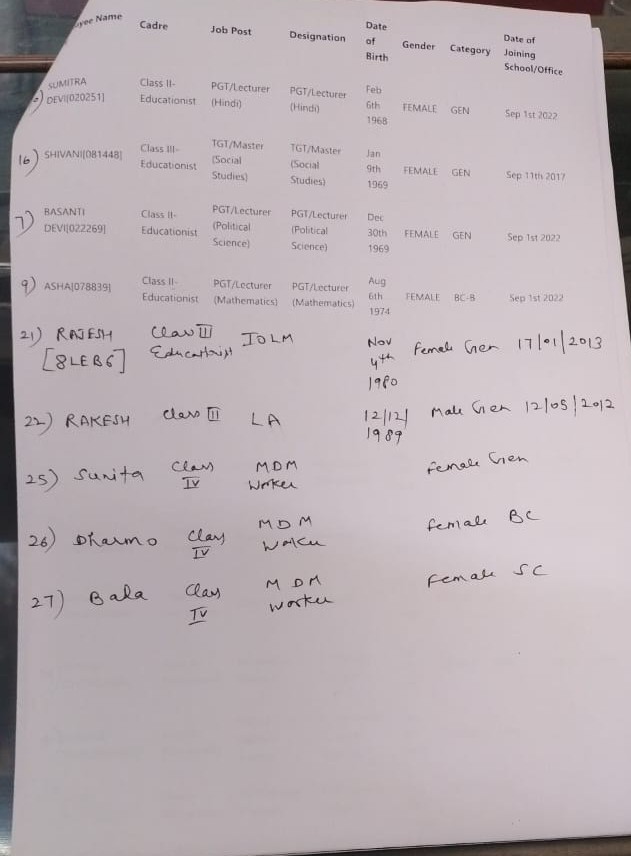 yee Name Cadre Job Post Designation Date of Birth Gender Category Date of Joining School/Office
6) SUMITRA DEVI[020251] Class II- Educationist PGT/Lecturer (Hindi) PGT/Lecturer (Hindi) Feb 6th 1968 FEMALE GEN Sep 1st 2022
16) SHIVANI[081448] Class III- Educationist TGT/Master (Social Studies) TGT/Master (Social Studies) Jan 9th 1969 FEMALE GEN Sep 11th 2017
7) BASANTI DEVI[022269] Class II- Educationist PGT/Lecturer (Political Science) PGT/Lecturer (Political Science) Dec 30th 1969 FEMALE GEN Sep 1st 2022
9) ASHA[078839] Class II- Educationist PGT/Lecturer (Mathematics) PGT/Lecturer (Mathematics) Aug 6th 1974 FEMALE BC-B Sep 1st 2022
21) RAJESH [8LEB6] Class III Educationist IOLM Nov 4th 1980 Female Gen 17/01/2013
22) RAKESH Class III LA 12/12/1989 Male Gen 12/05/2012
25) Sunita Class IV MDM Worker Female Gen
26) Dharmo Class IV MDM Worker Female BC
27) Bala Class IV MDM Worker Female SC